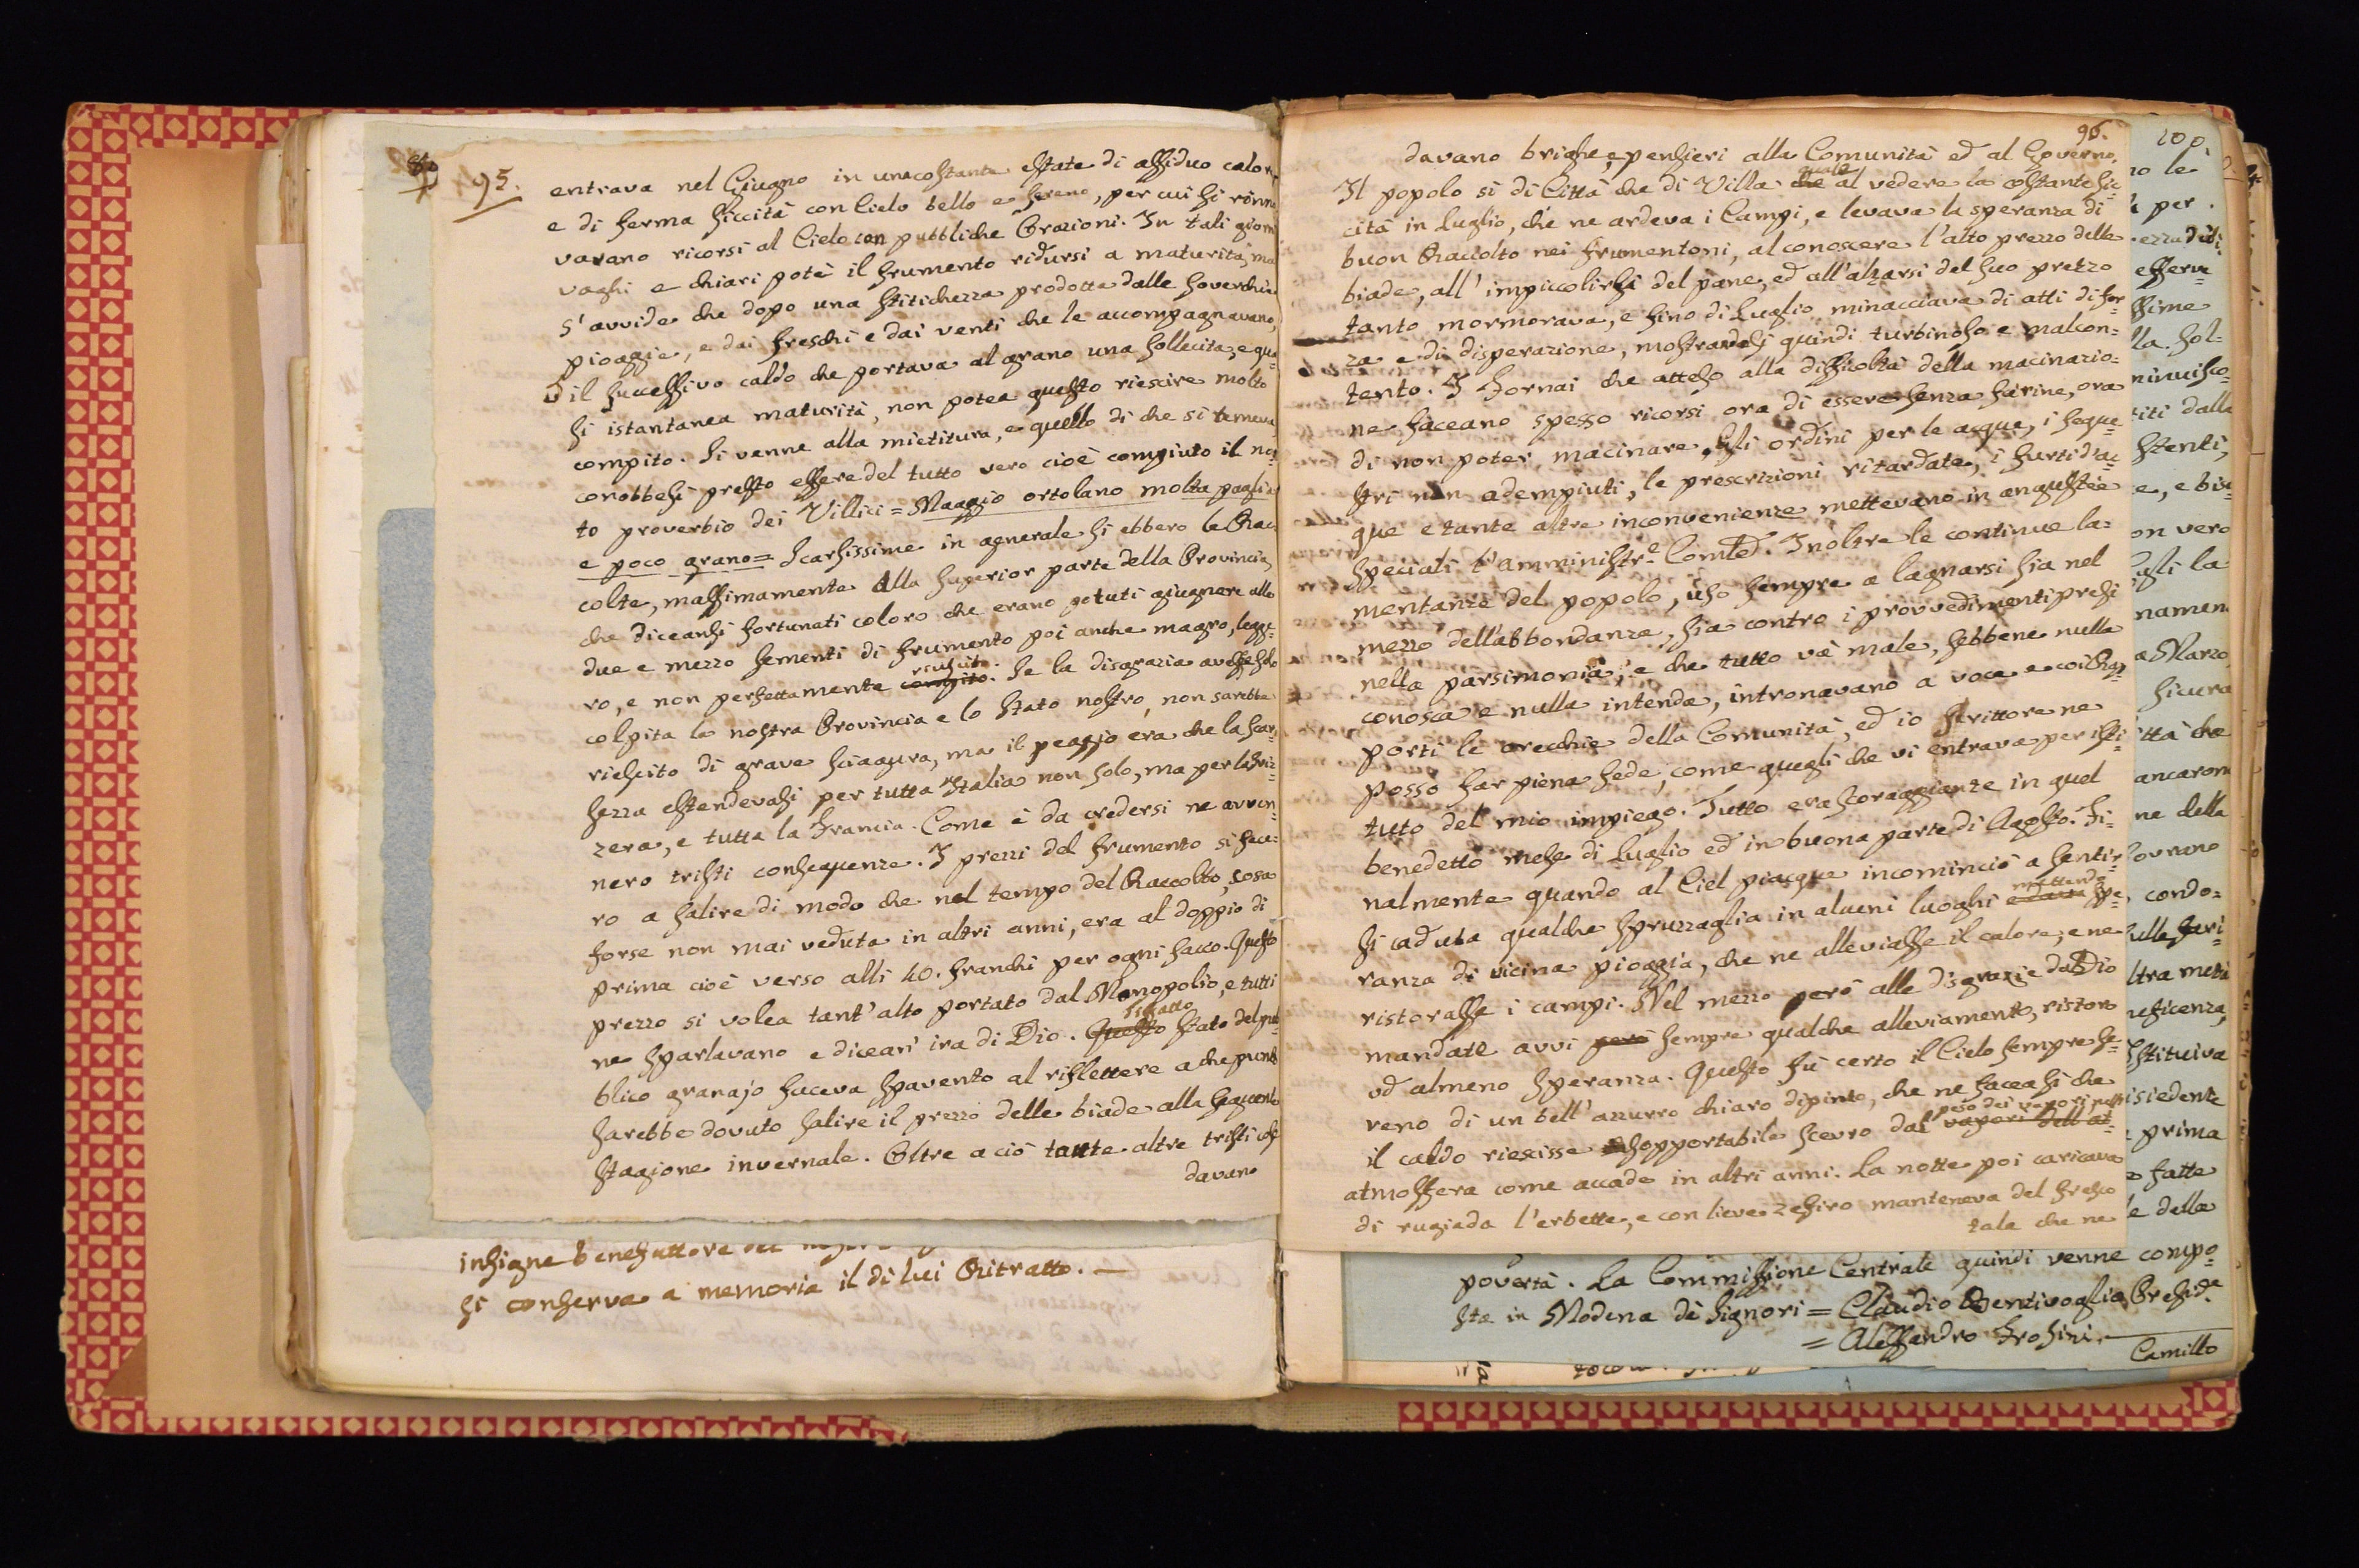 80
95.
entrava nel Giugno in una costante estate di assiduo calor
e di ferma siccità con Cielo bello e sereno, per cui si rinno
vavano ricorsi al Cielo con pubbliche Orazioni. In tali giorni
vaghi e chiari potè il frumento ridursi a maturità, ma
s'avvide che dopo una stitichezza prodotta dalle soverchie
pioggie, e dai freschi e dai venti che le accompagnavano,
il successivo caldo che portava al grano una sollecita, e qua=
si istantanea maturità, non potea questo riescire molto
compito. Si venne alla mietitura, e quello di che si temeva,
conobbesi presto essere del tutto vero cioè compiuto il no=
to proverbio dei Villici = Maggio ortolano molta paglia
e poco grano = Scarsissime in generale si ebbero le Rac=
colte, massimamente alla superior parte della Provincia,
che diceansi fortunati coloro che erano potuti giugnere alle
due e mezzo sementi di frumento poi anche magro, legge=
ro, e non perfettamente compito. riuscito Se la disgrazia avesse solo
colpita la nostra Provincia e lo Stato nostro, non sarebbe
riescito di grave sciagura, ma il peggio era che la scar=
sezza estendevasi per tutta Italia non solo, ma per la Sviz=
zera, e tutta la Francia. Come è da credersi ne avven=
nero tristi conseguenze. I prezzi del frumento si fece=
ro a salire di modo che nel tempo del Raccolto, cosa
forse non mai veduta in altri anni, era al doppio di
prima cioè verso alli 40. franchi per ogni sacco. Questo
prezzo si volea tant'alto portato dal Monopolio, e tutti
ne sparlavano e dicean' ira di Dio. Questo Siffatto stato del pub=
blico granajo faceva spavento al riflettere a che punto
sarebbe dovuto salire il prezzo delle biade alla seguente
stagione invernale. Oltre a ciò tante altre tristi cose
davano
insigne benefattore
si conserva a memoria il di lui Ritratto. —
96.
davano brighe, e pensieri alla Comunità ed al Governo.
Il popolo sì di Città che di Villa che quale al vedere la costante sic=
cità in Luglio, che ne ardeva i Campi, e levava la speranza di
buon Raccolto nei frumentoni, al conoscere l'alto prezzo delle
biade, all'impiccolirsi del pane, ed all'alzarsi del suo prezzo
tanto mormorava, e fino di Luglio minacciava di atti di for=
za e di disperazione, mostrandosi quindi turbinoso e malcon=
tento. I Fornai che atteso alla difficoltà della macinazio=
ne faceano spesso ricorsi ora di essere senza farine, ora
di non poter macinare. Gli ordini per le acque, i seque=
stri non adempiuti, le prescrizioni ritardate, i furti d'ac=
que e tante altre inconvenienze mettevano in angustie
speciali l'amministr.e Com.le. Inoltre le continue la=
mentanze del popolo, uso sempre a lagnarsi sia nel
mezzo dell'abbondanza, sia contro i provvedimenti presi
nella parsimonia, e che tutto và male, sebbene nulla
conosca e nulla intenda, intronavano a voce e coi Rap=
porti le orecchie della Comunità, ed io scrittore ne
posso far piena fede, come quegli che vi entrava per isti=
tuto del mio impiego. Tutto era scoraggiante in quel
benedetto mese di Luglio ed in buona parte di Agosto. Fi=
nalmente quando al Ciel piacque incominciò a sentir=
si caduta qualche spruzzaglia in alcuni luoghi mettendo spe=
ranza di vicina pioggia, che ne alleviasse il calore, e ne
ristorasse i campi. Nel mezzo però alle disgrazie da Dio
mandate avvi però sempre qualche alleviamento, ristoro
od almeno speranza. Questo fù certo il Cielo sempre se=
reno di un bell'azzurro chiaro dipinto, che ne facea sì che
il caldo riescisse sopportabile scevro dal peso dei vapori, nell' vapori dell'at=
atmosfera come accade in altri anni. La notte poi caricava
di rugiada l'erbette, e con lieve zefiro manteneva del fresco
tale che ne
100.
povertà. La Commissione Centrale quindi venne compo=
sta in Modena dè Signori = Claudio Bentivoglia Presid.e
= Alessandro Frosini.
Camillo